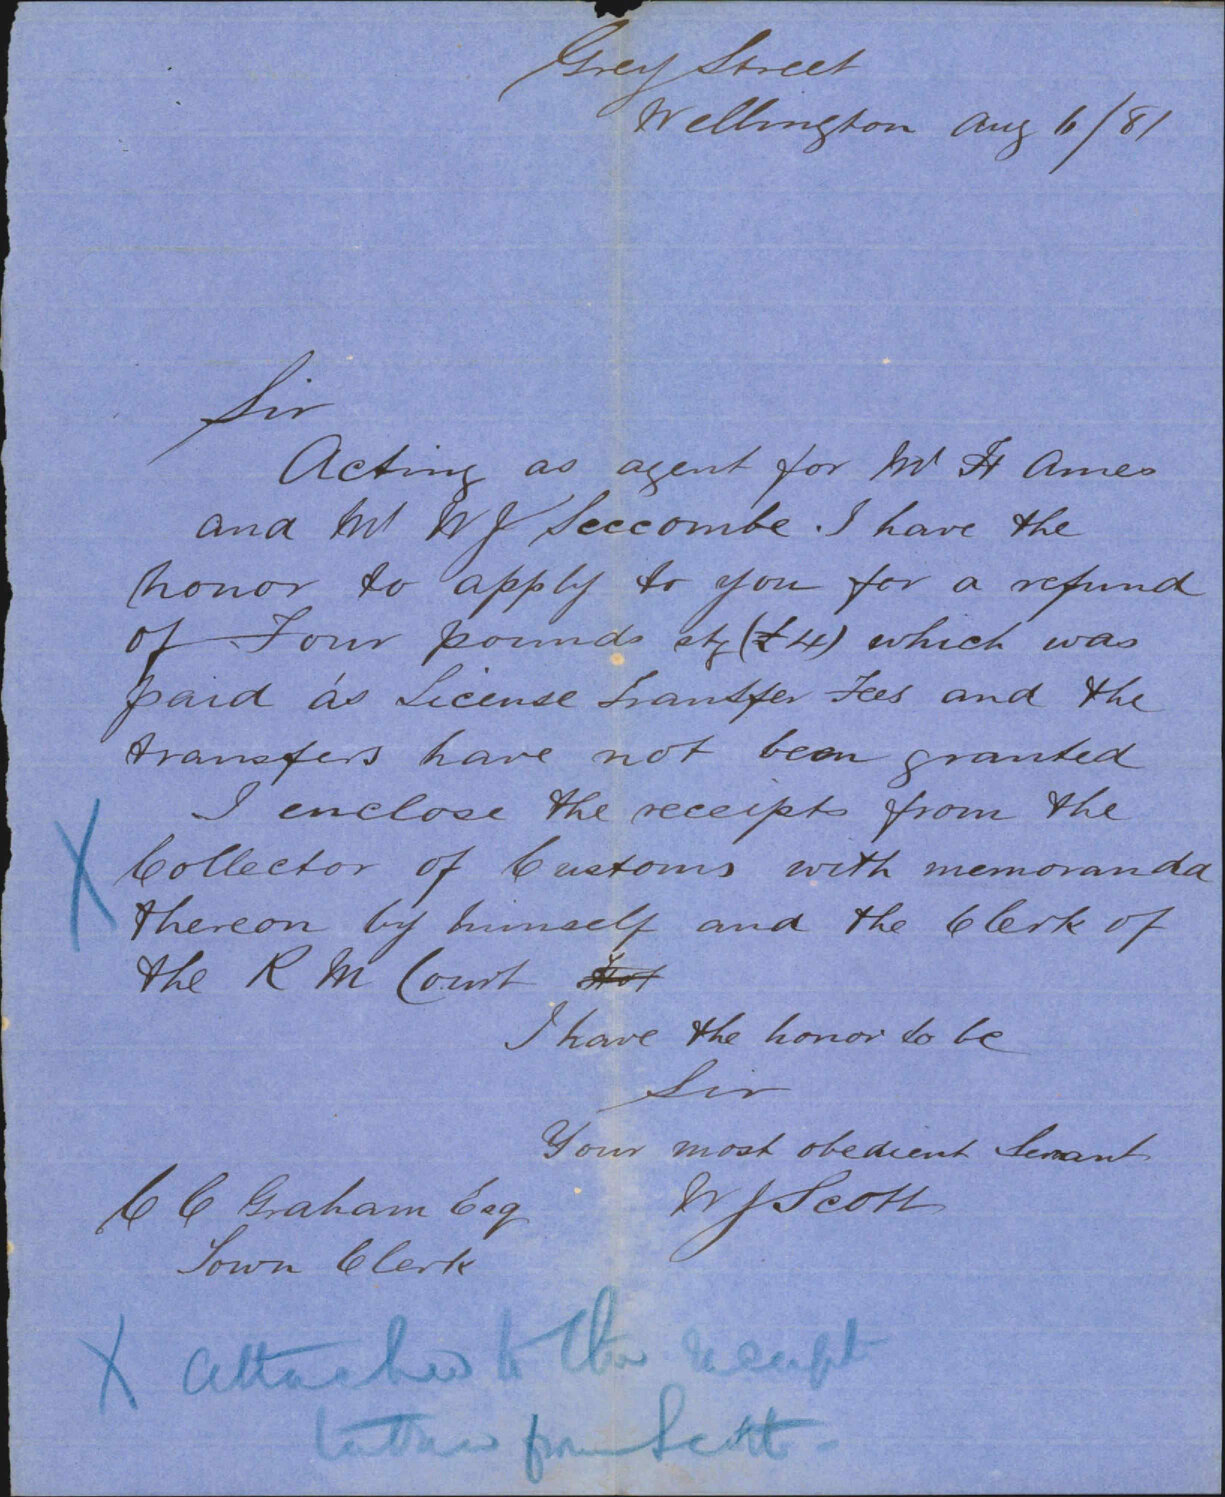 Grey Street
Wellington Aug 6/81
Sir
Acting as agent for Mr H Ames
and Mr W J Seccombe. I have the
honor to apply to you for a refund
of Four pounds stg (£4) which was
paid as License Transfer Fees and the
transfers have not been granted
I enclose the receipts from the
X Collector of Customs with memoranda
thereon by himself and the Clerk of
the R M Court
I have the honor to be
Sir
Your most obedient Servant
W J Scott
C C Graham Esq
Town Clerk
X attached to the receipt
from Scott -